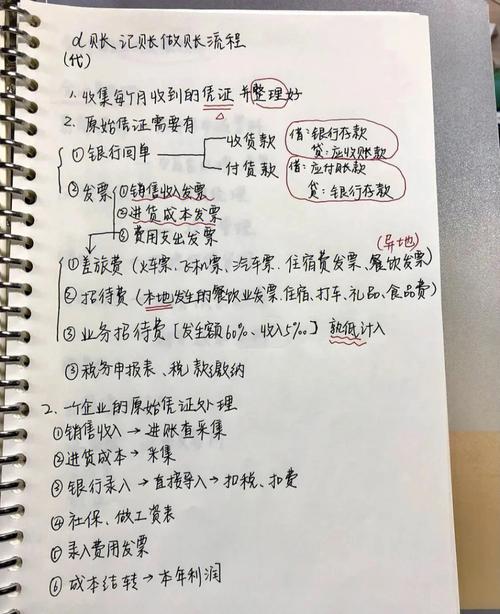 d账记账做账流程
(代)
1. 收集每个月收到的凭证并整理好
2. 原始凭证需要有
①银行回单
收货款
付货款
借:银行存款
贷:应收账款
借:应付账款
贷:银行存款
②发票
①销售收入发票
②进货成本发票
③费用支出发票
①差旅费(火车票、飞机票、汽车票、住宿费发票、餐饮发票)
(异地)
②招待费(本地发生的餐饮业发票、住宿、打车、礼品、食品费)
③业务招待费[发生额60%、收入5‰]孰低计入
③税务申报表、税款缴纳
2、一个企业的原始凭证处理
①销售收入→进账查采集
②进货成本→采集
③银行录入→直接导入→扣税、扣费
④社保、做工资表
⑤录入费用发票
⑥成本结转→本年利润